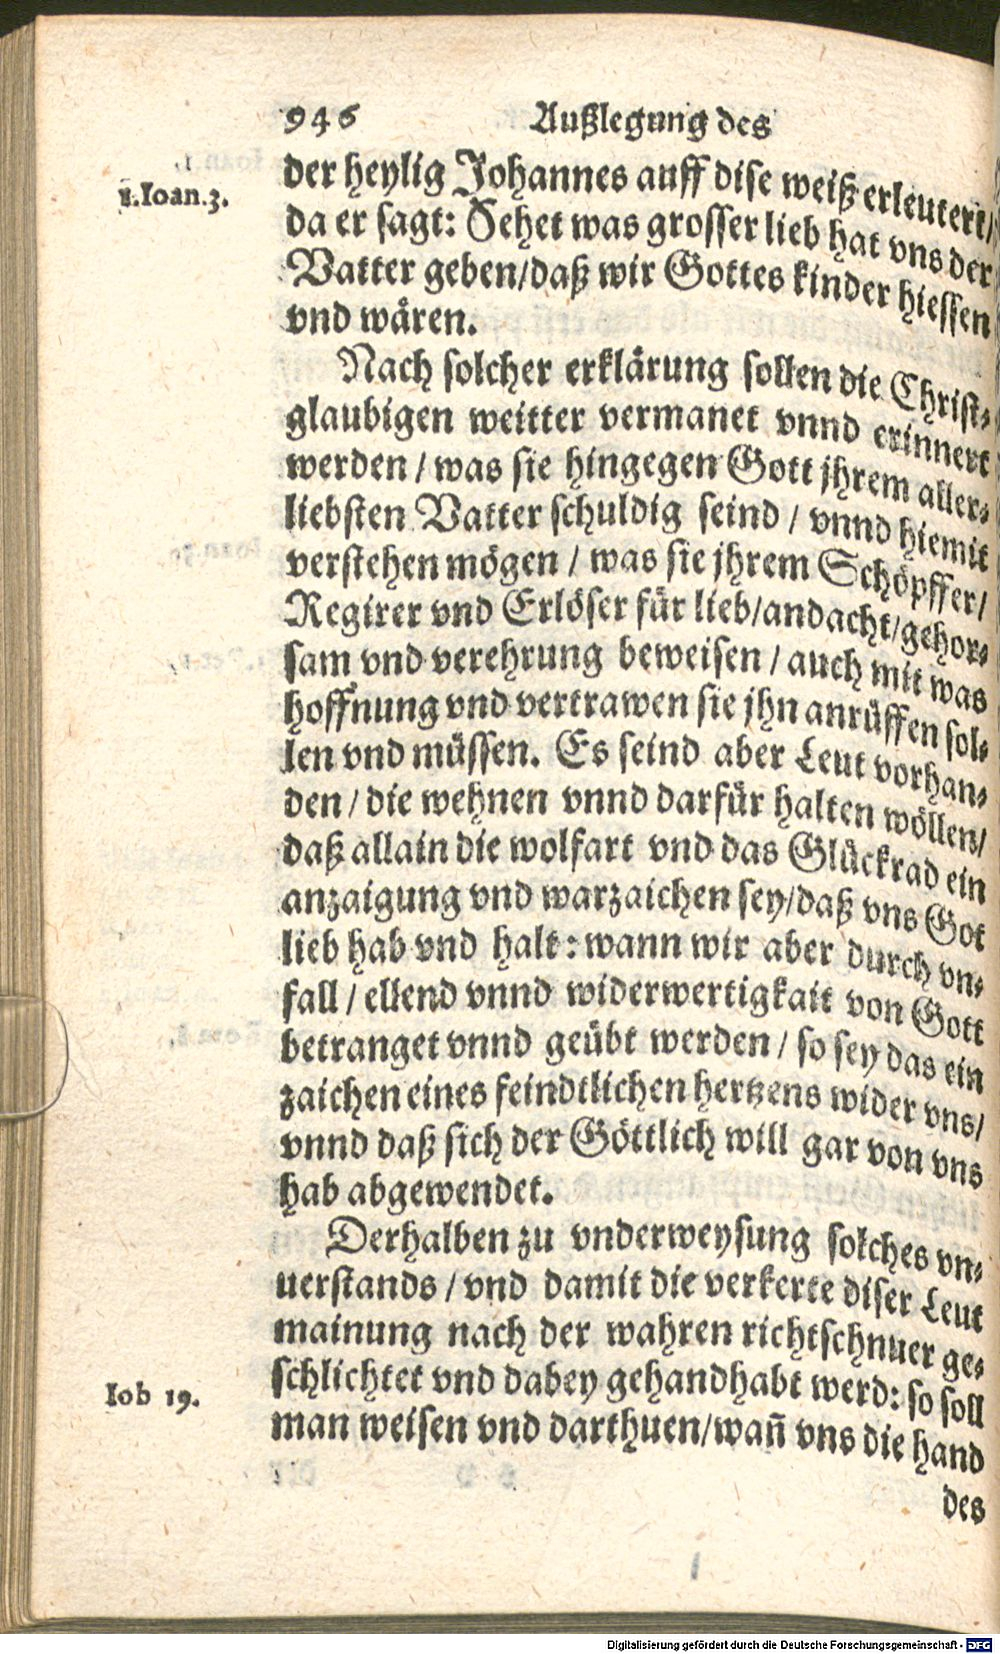 946 Außlegung des
1.Ioan.3.
der heylig Johannes auff dise weiß erleutert/
da er sagt: Sehet was grosser lieb hat vns der
Vatter geben/daß wir Gottes kinder hiessen
vnd wären.
Nach solcher erklärung sollen die Christ⸗
glaubigen weitter vermanet vnnd erinnert
werden / was sie hingegen Gott jhrem aller⸗
liebsten Vatter schuldig seind / vnnd hiemit
verstehen mögen / was sie jhrem Schöpffer/
Regirer vnd Erlöser für lieb/andacht/gehor⸗
sam vnd verehrung beweisen / auch mit was
hoffnung vnd vertrawen sie jhn anrüffen sol⸗
len vnd müssen. Es seind aber Leut vorhan⸗
den / die wehnen vnnd darfür halten wöllen/
daß allain die wolfart vnd das Glückrad ein
anzaigung vnd warzaichen sey/daß vns Got
lieb hab vnd halt: wann wir aber durch vn⸗
fall / ellend vnnd widerwertigkait von Gott
betranget vnnd geübt werden / so sey das ein
zaichen eines feindtlichen hertzens wider vns/
vnnd daß sich der Göttlich will gar von vns
hab abgewendet.
Derhalben zu vnderweysung solches vn⸗
uerstands / vnd damit die verkerte diser Leut
mainung nach der wahren richtschnuer ge⸗
schlichtet vnd dabey gehandhabt werd: so soll
Iob 19.
man weisen vnd darthuen/wañ vns die hand
des
Digitalisierung gefördert durch die Deutsche Forschungsgemeinschaft - DFG